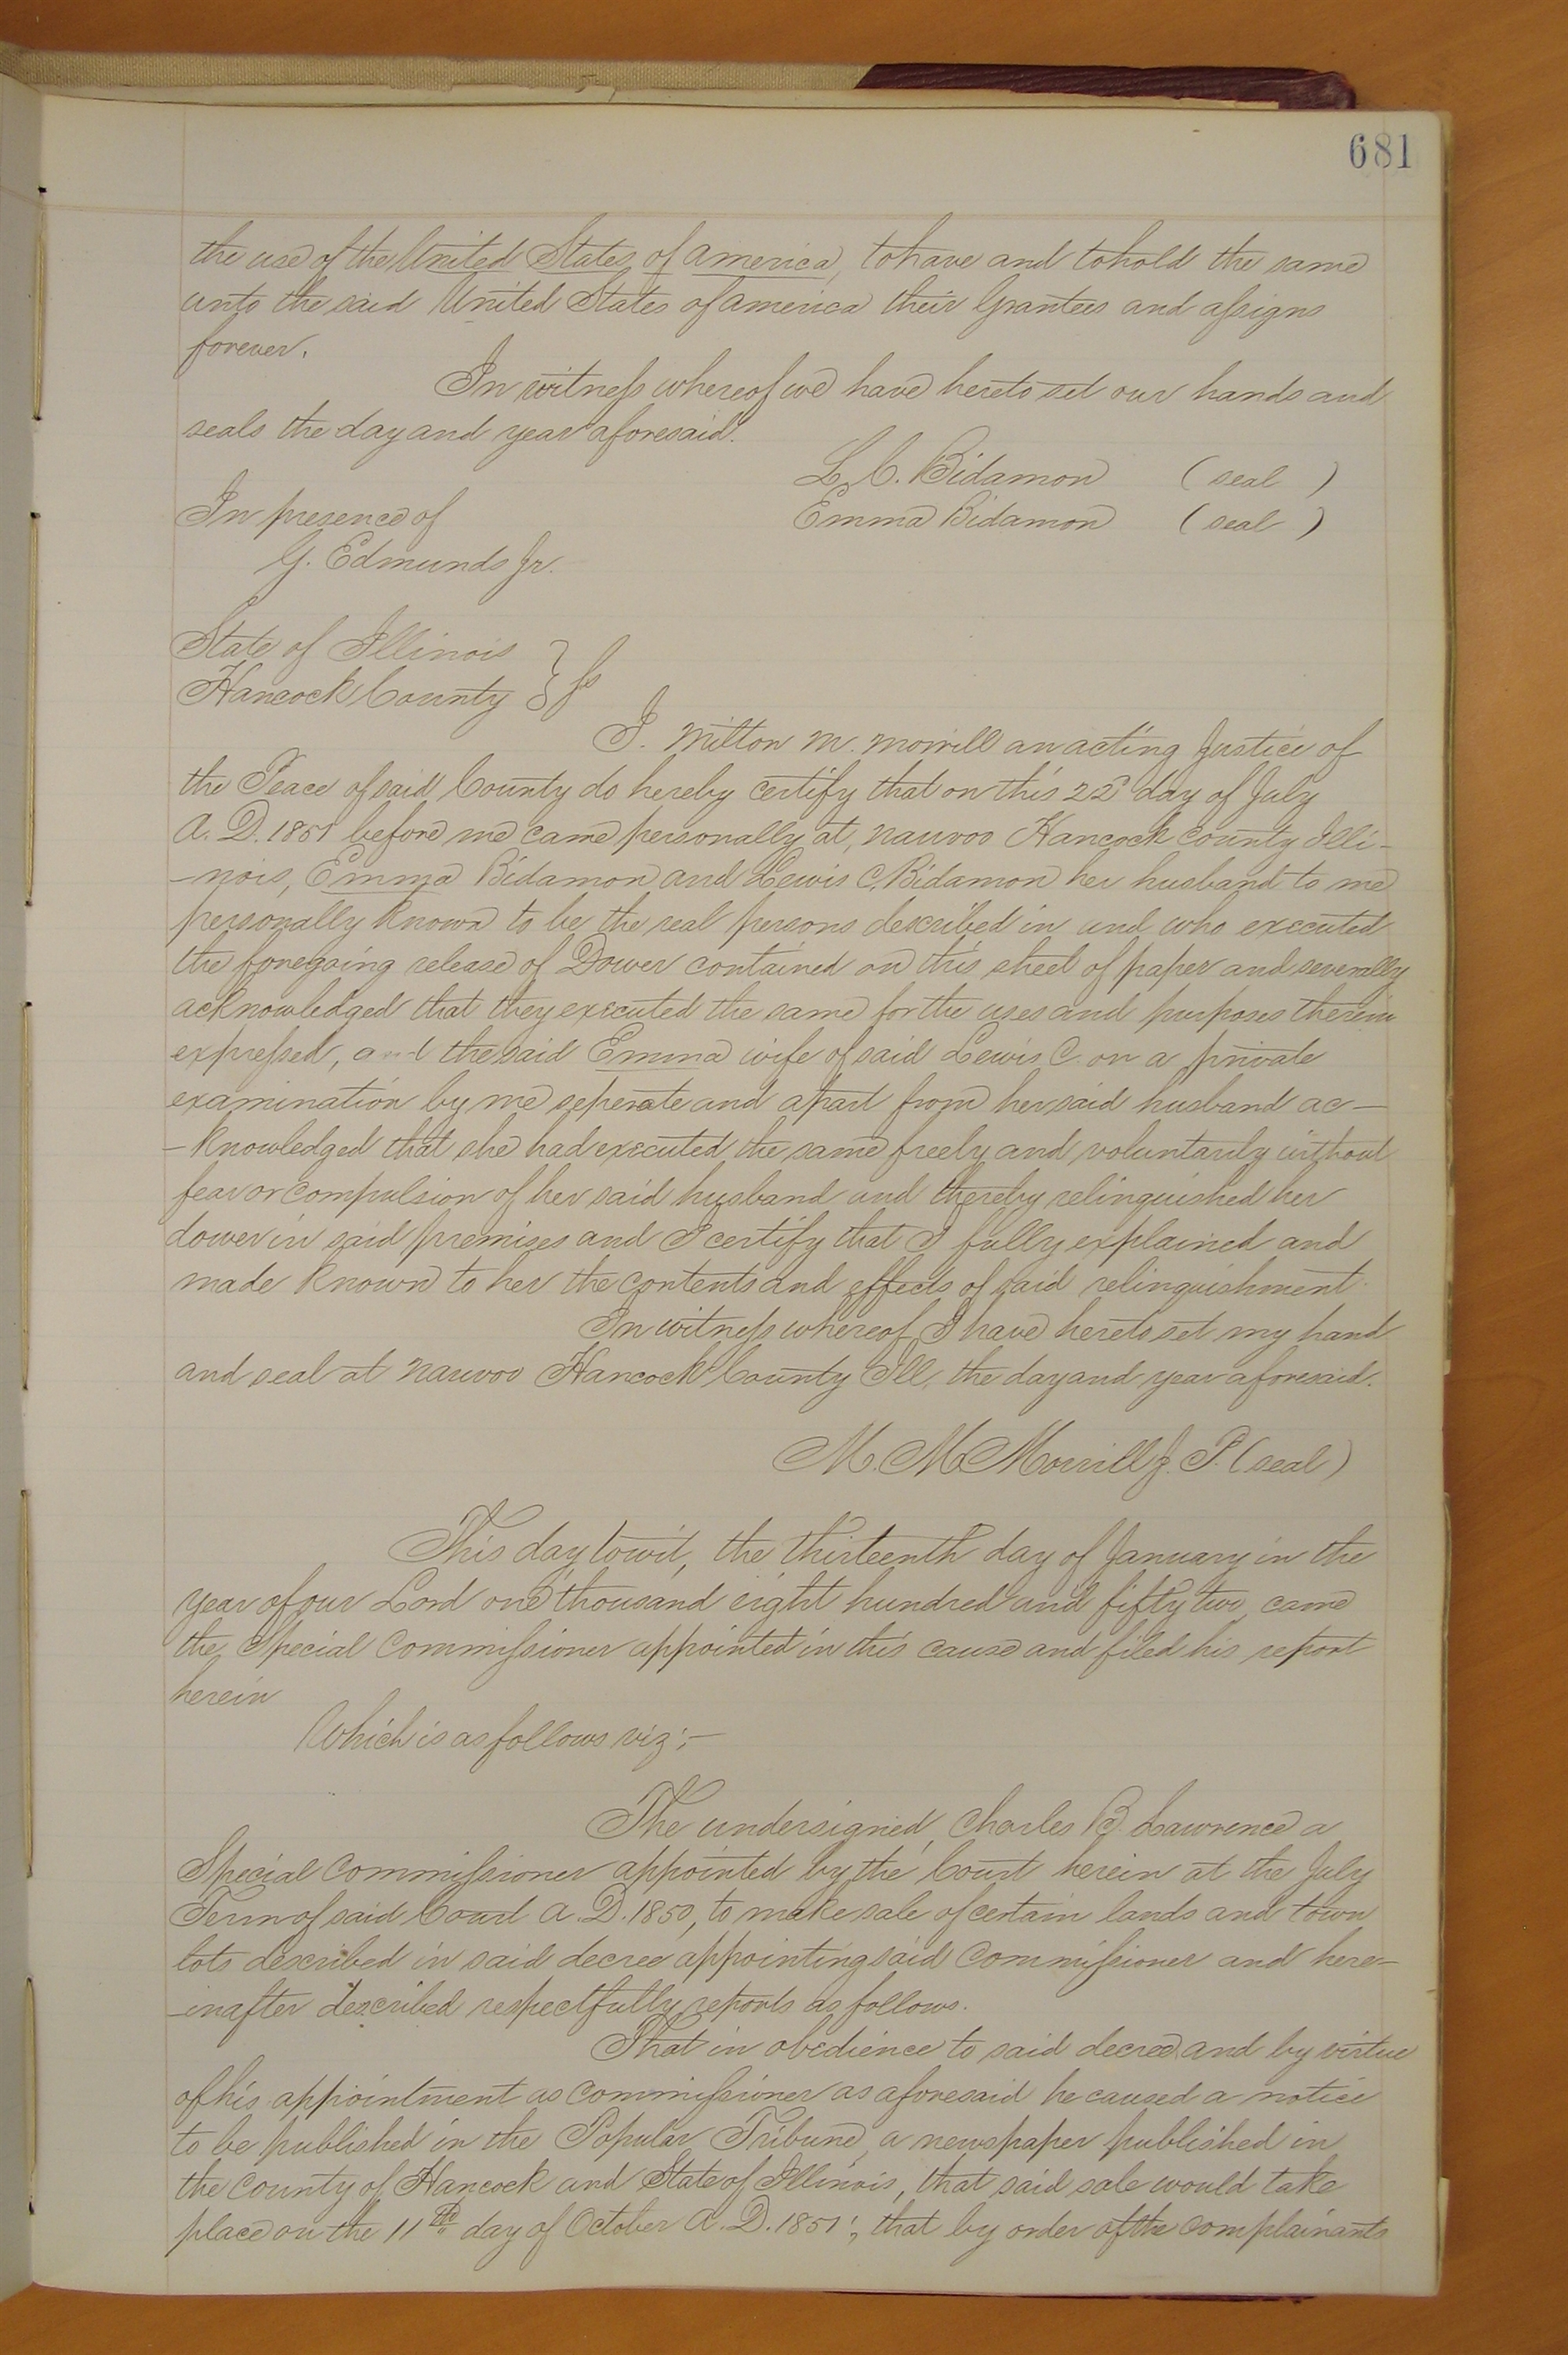 681
the use of the United States of America, to have and to hold the same
unto the said United States of America their Grantees and assigns
forever.
In witness whereof we have hereto set our hands and
seals the day and year aforesaid.
L. C. Bidamon (seal)
Emma Bidamon (seal)
In presence of
G. Edmunds Jr.
State of Illinois
Hancock County } ss
I. Milton M. Morrill an acting Justice of
the Peace of said County do hereby certify that on this 22d day of July
A. D. 1851 before me came personally at, Nauvoo Hancock County Illi-
-nois, Emma Bidamon and Lewis C. Bidamon her husband to me
personally known to be the real persons described in and who executed
the foregoing release of Dower contained on this sheet of paper and severally
acknowledged that they executed the same for the uses and purposes therein
expressed, and the said Emma wife of said Lewis C. on a private
examination by me seperate and apart from her said husband ac-
-knowledged that she had executed the same freely and voluntarily without
fear or compulsion of her said husband and thereby relinquished her
dower in said premises and I certify that I fully explained and
made known to her the contents and effects of said relinquishment.
In witness whereof I have hereto set my hand
and seal at Nauvoo Hancock County Ill. the day and year aforesaid.
M. M. Morrill J. P. (seal)
This day towit, the thirteenth day of January in the
year of our Lord one thousand eight hundred and fifty two, came
the Special Commissioner appointed in this cause and filed his report
herein
Which is as follows viz;-
The undersigned, Charles B. Lawrence a
Special Commissioner appointed by the Court herein at the July
Term of said Court A. D. 1850, to make sale of certain lands and town
lots described in said decree appointing said Commissioner and here-
-inafter described respectfully reports as follows.
That in obedience to said decree and by virtue
of his appointment as Commissioner as aforesaid he caused a notice
to be published in the Popular Tribune, a newspaper published in
the County of Hancock and State of Illinois, that said sale would take
place on the 11th day of October A. D. 1851; that by order of the complainants